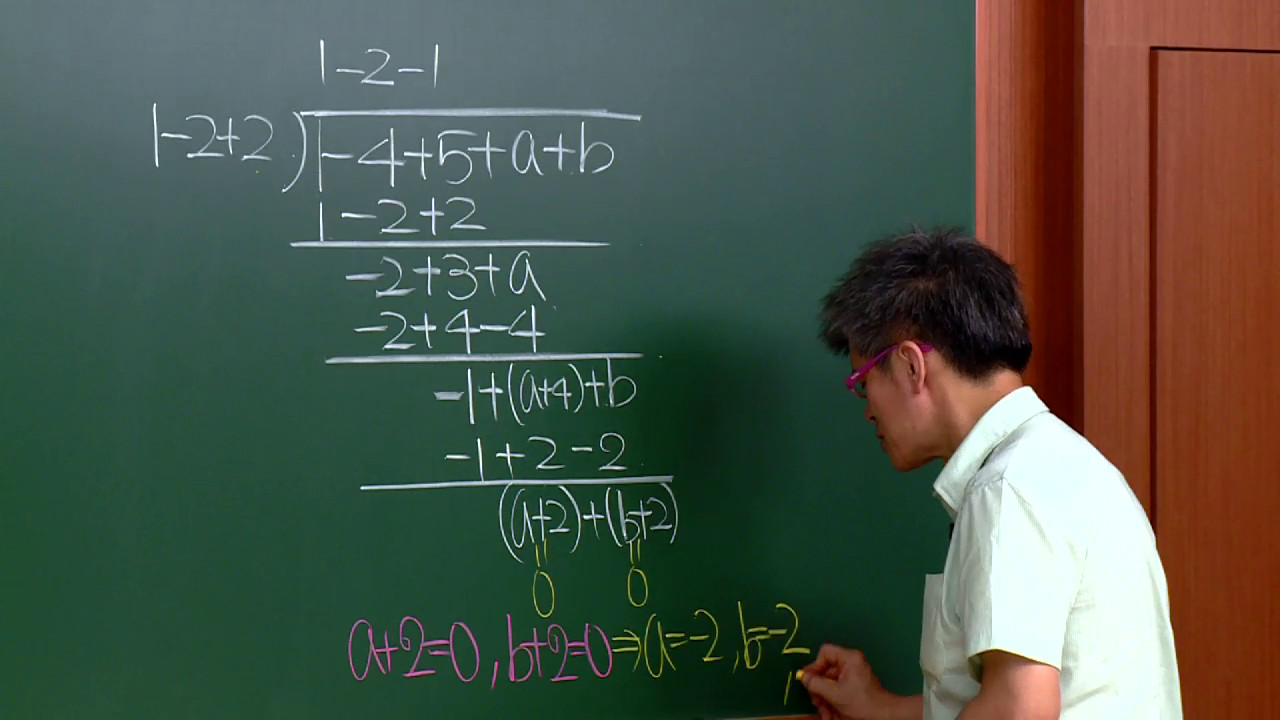 1-2-1
1-2+2)1-4+5+a+b
1-2+2
-2+3+a
-2+4-4
-1+(a+4)+b
-1+2-2
(a+2)+(b+2)
= =
0 0
a+2=0, b+2=0⇒a=-2, b=-2